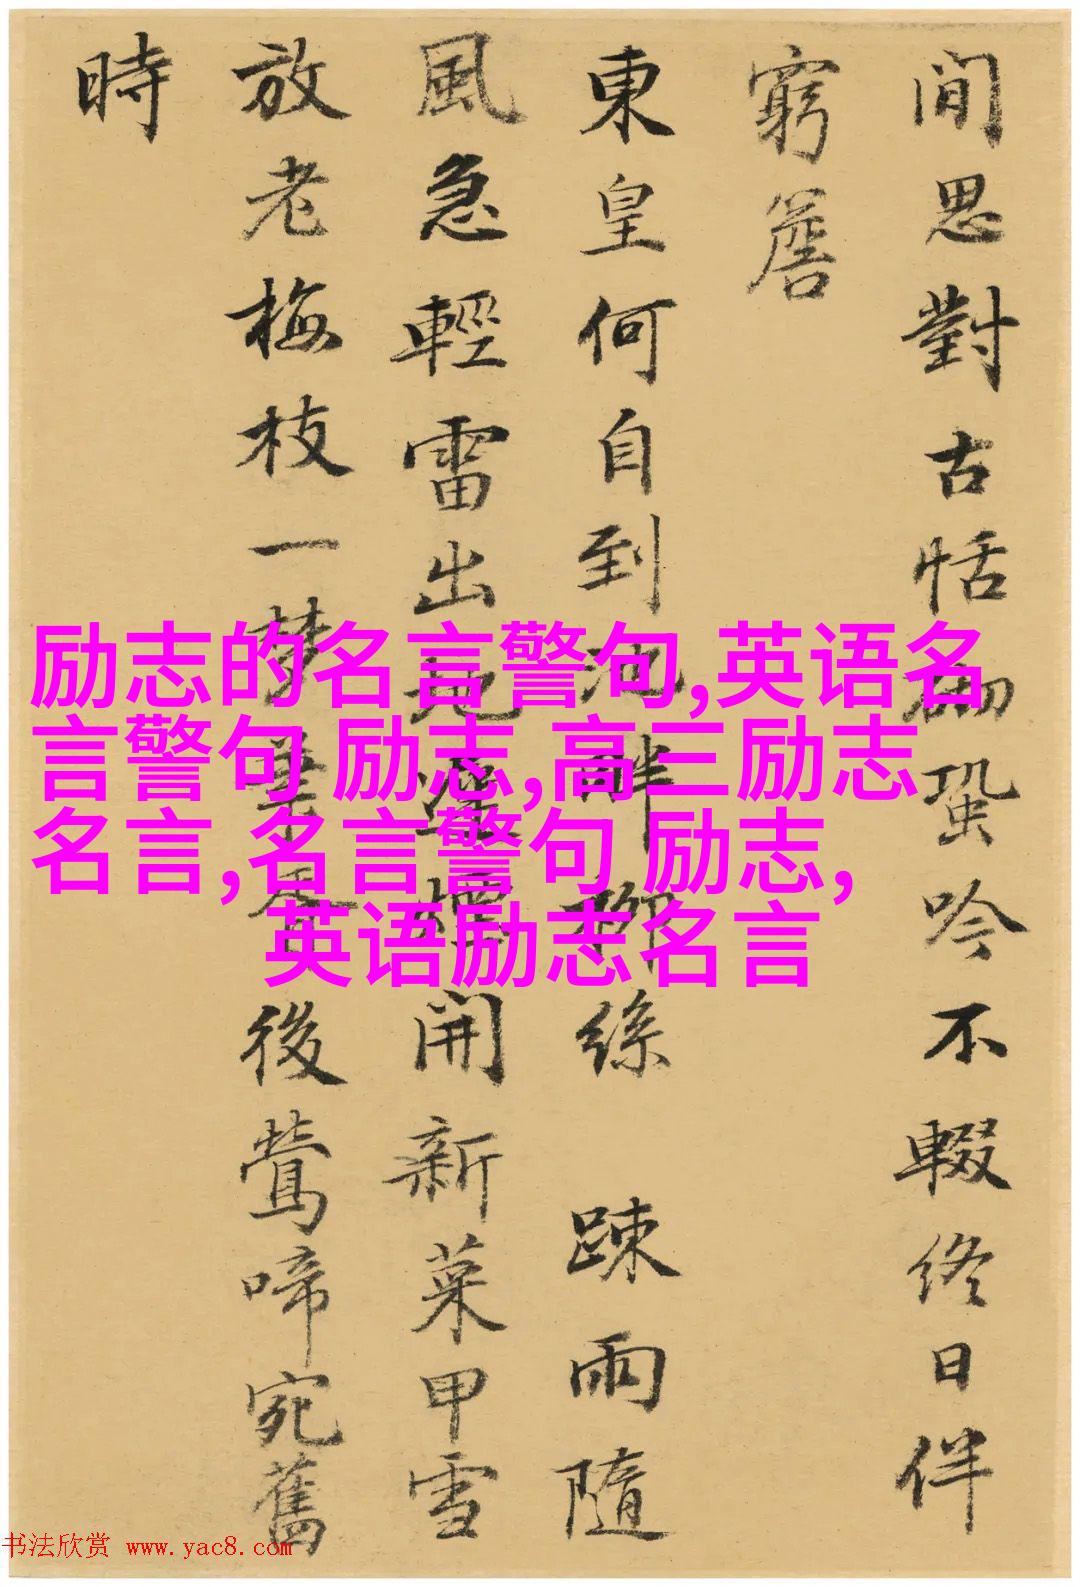 閒思對古恬砌蛩吟不輟終日伴
窮簷
東皇何自到池畔柳絲 踈雨隨
風急輕雷出地開新菜甲雪
放老梅枝一夢華胥後鶯啼宛舊
時
励志的名言警句,英语名
言警句 励志,高三励志
名言,名言警句 励志,
英语励志名言
书法欣赏 www.yac8.com